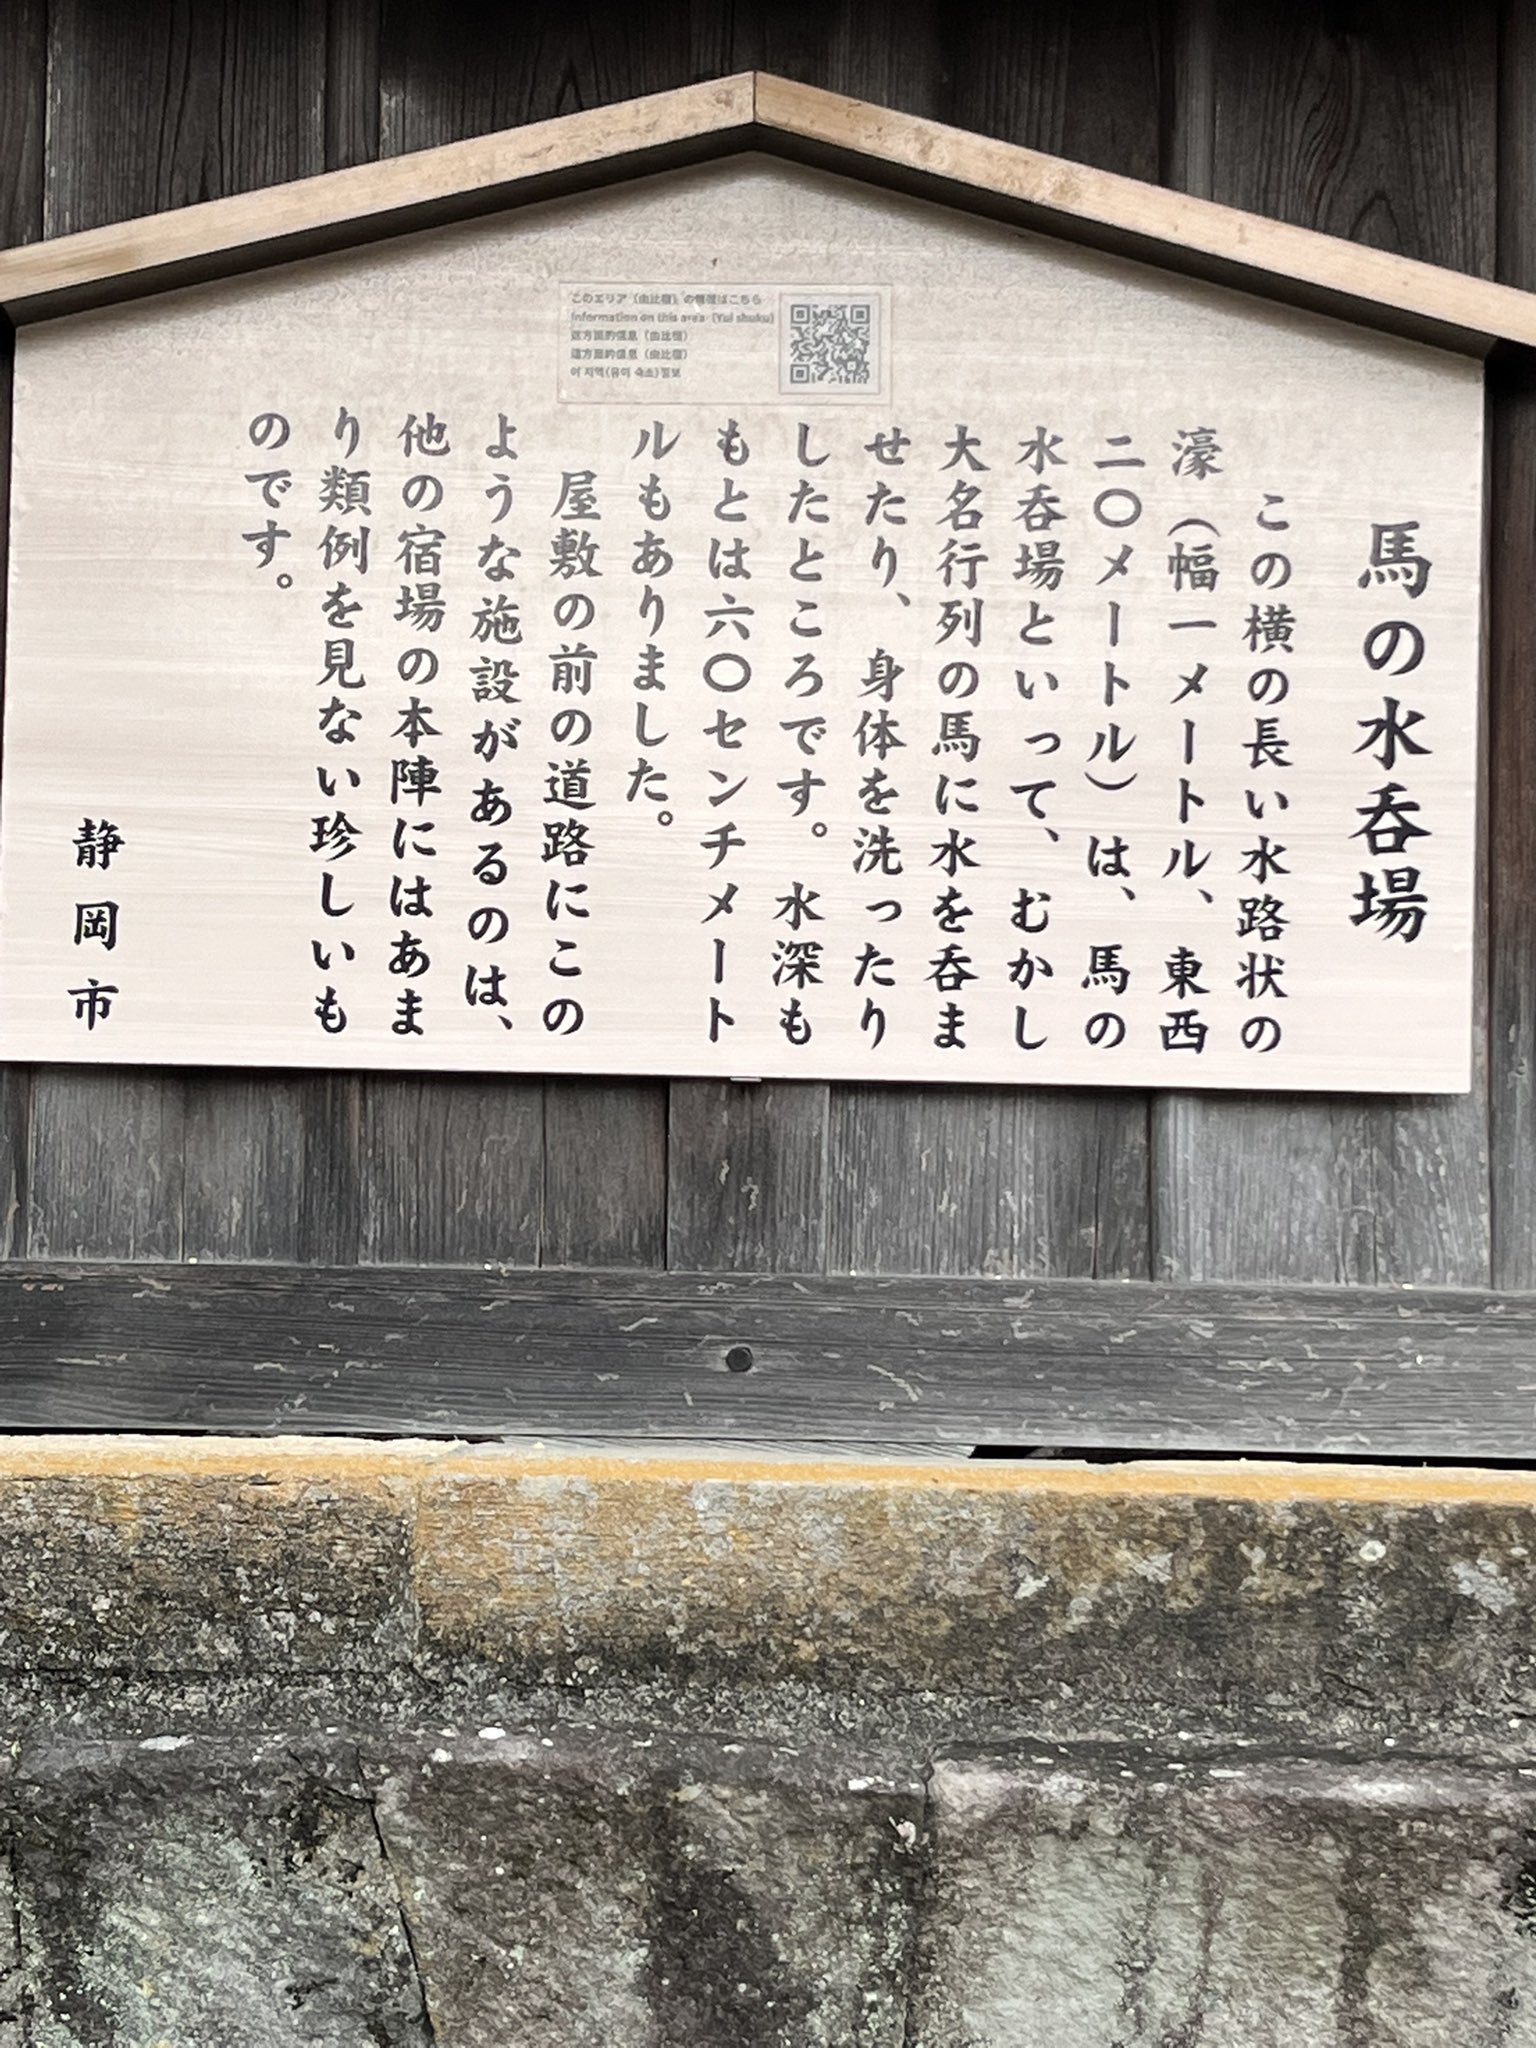 馬の水呑場
この横の長い水路状の
濠（幅一メートル、東西
二〇メートル）は、馬の
水呑場といって、むかし
大名行列の馬に水を呑ま
せたり、身体を洗ったり
したところです。水深も
もとは六〇センチメート
ルもありました。
屋敷の前の道路にこの
ような施設があるのは、
他の宿場の本陣にはあま
り類例を見ない珍しいも
のです。
静岡市
このエリア（由比宿）の情報はこちら
Information on this area (Yui shuku)
这方面的信息（由比宿）
這方面的信息（由比宿）
이 지역(유이 숙소)정보